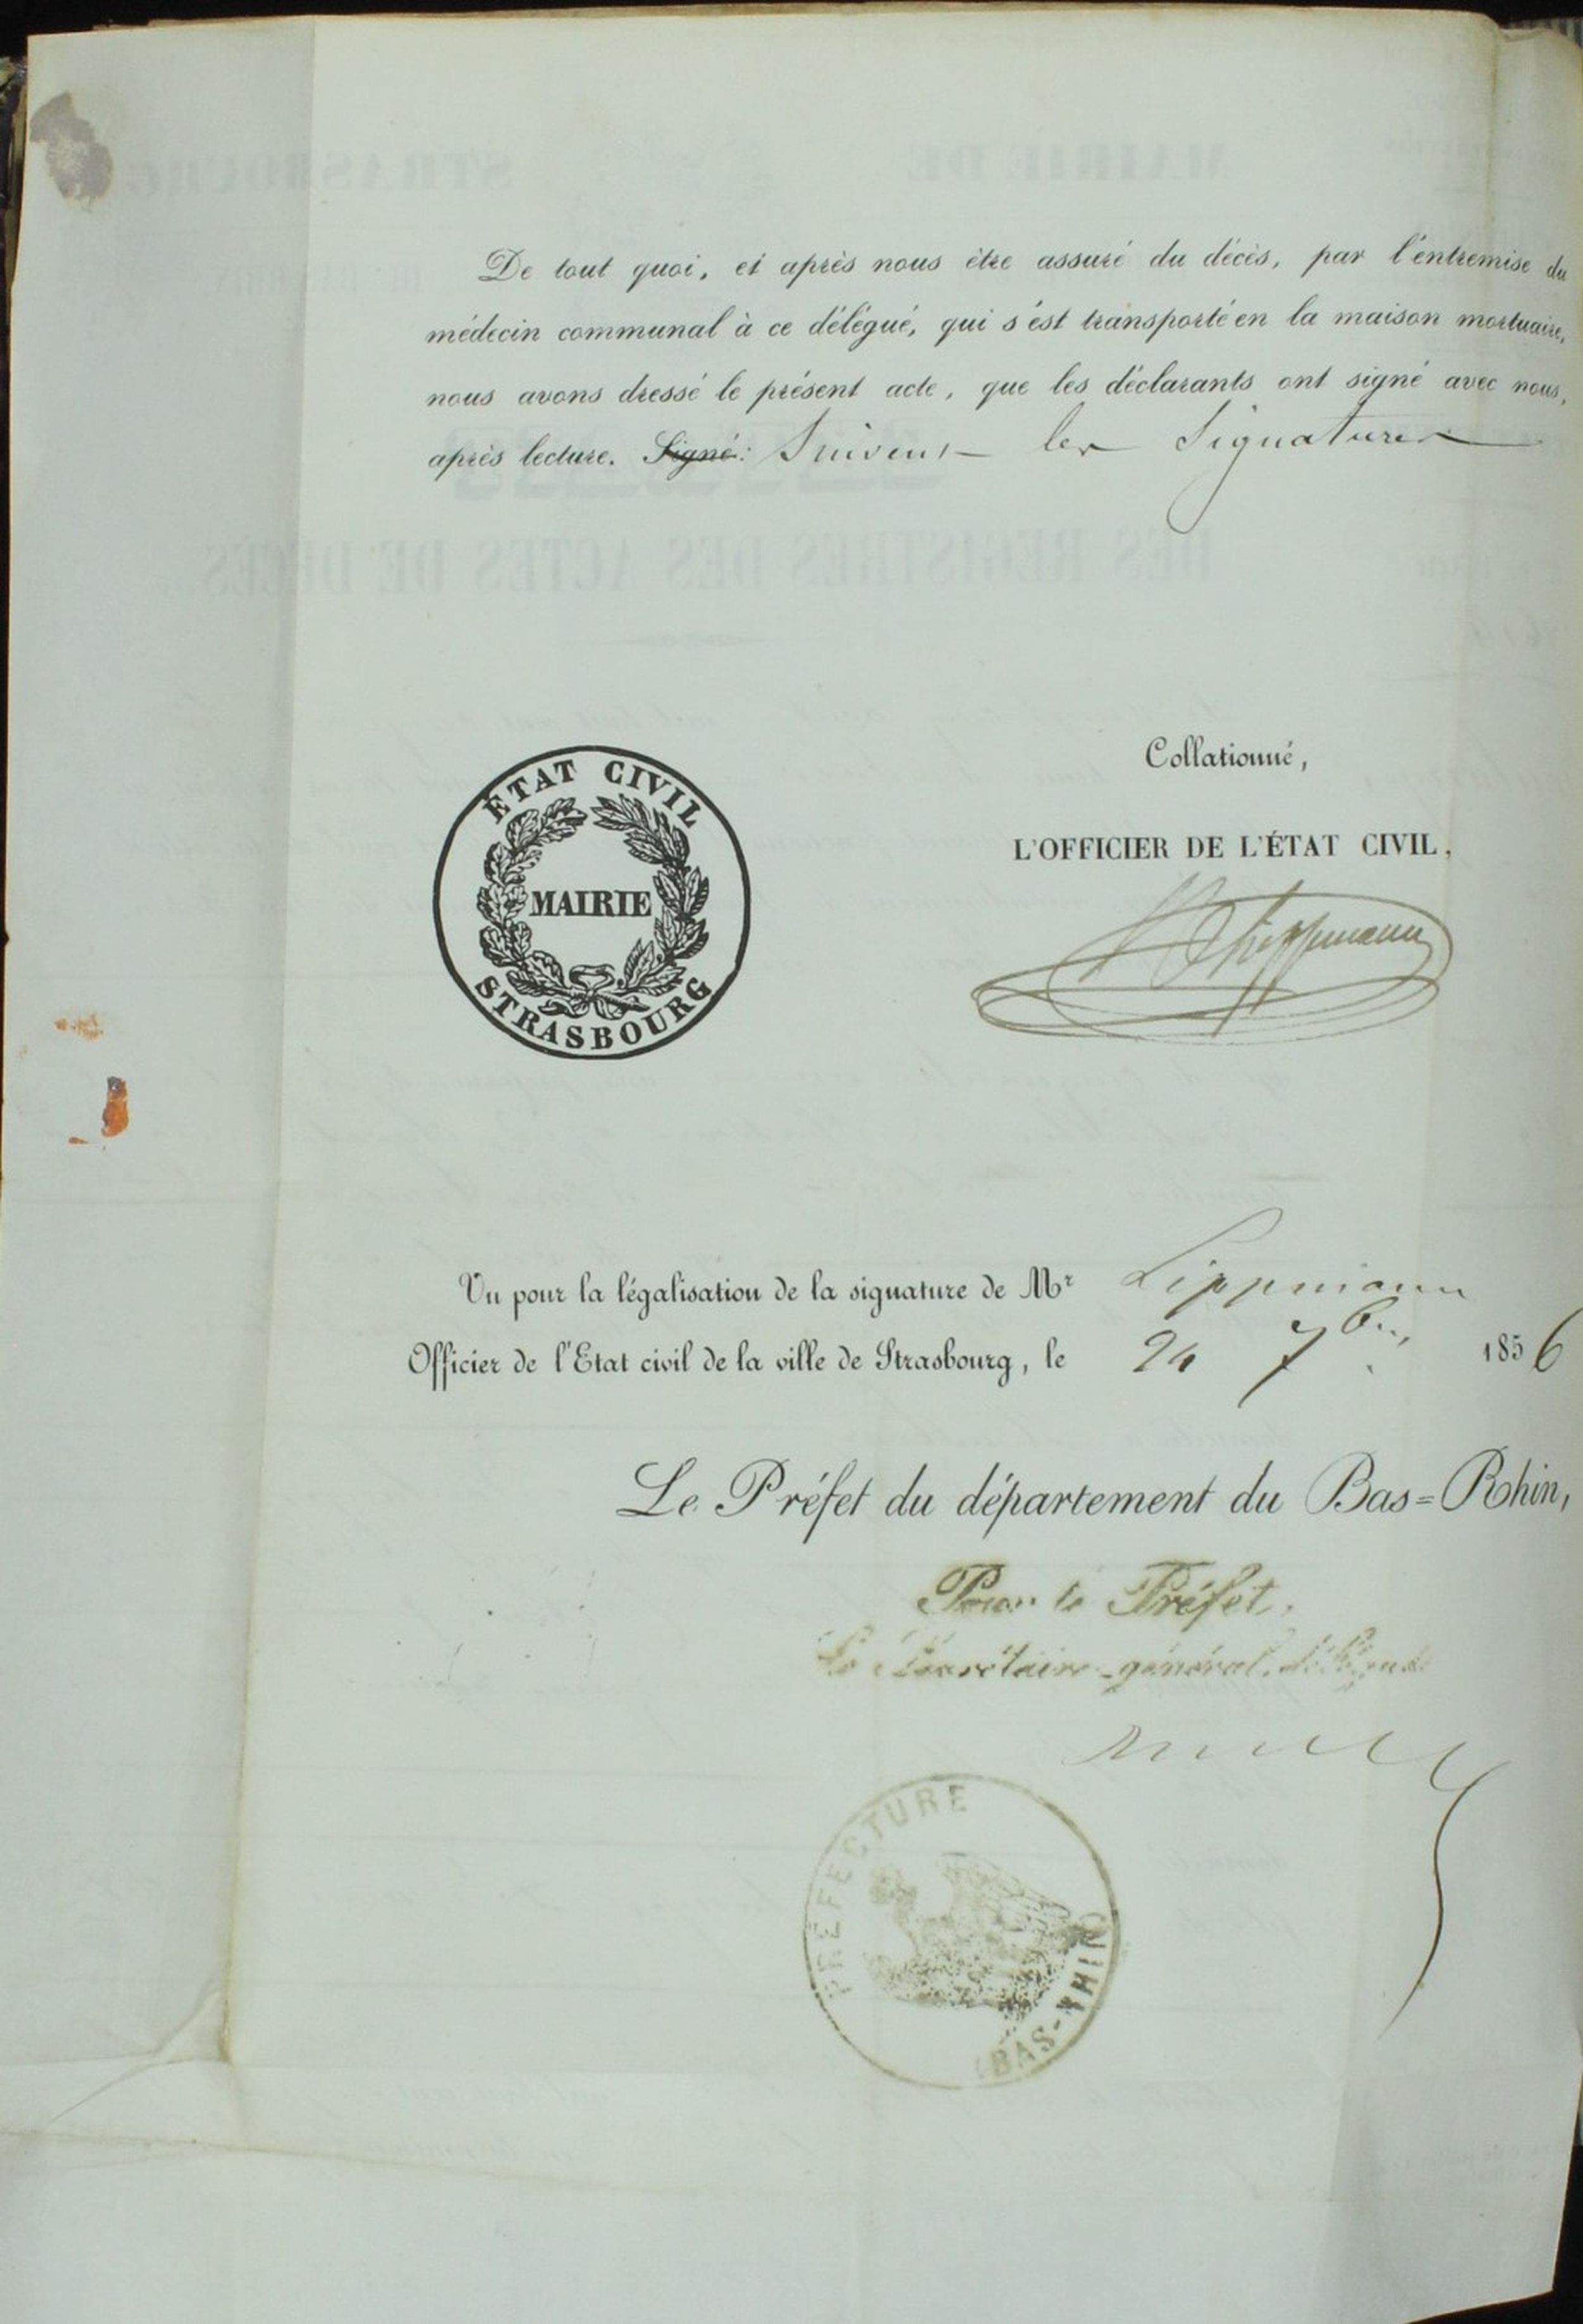 De tout quoi, et après nous être assuré du décès, par l'entremise du
médecin communal à ce délégué, qui s'est transporté en la maison mortuaire,
nous avons dressé le présent acte, que les déclarants ont signé avec nous,
après lecture. Signé: Suivent les Signatures
ÉTAT CIVIL
MAIRIE
STRASBOURG
Collationné,
L'OFFICIER DE L'ÉTAT CIVIL,
Lippmann
Vu pour la légalisation de la signature de Mr Lippmann
Officier de l'Etat civil de la ville de Strasbourg, le 24 7bre 1856
Le Préfet du département du Bas=Rhin,
Pour le Préfet,
Le Secrétaire-général, délégué
PRÉFECTURE
(BAS-RHIN)